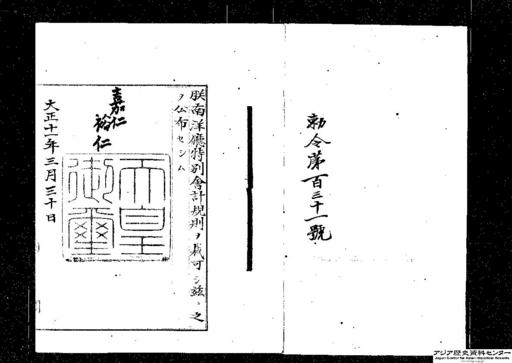 勅令第百三十一號
朕南洋廳特別會計規則ヲ裁可シ茲ニ之
ヲ公布セシム
嘉仁
裕仁
天皇御璽
大正十一年三月三十日
アジア歴史資料センター
Japan Center for Asian Historical Records